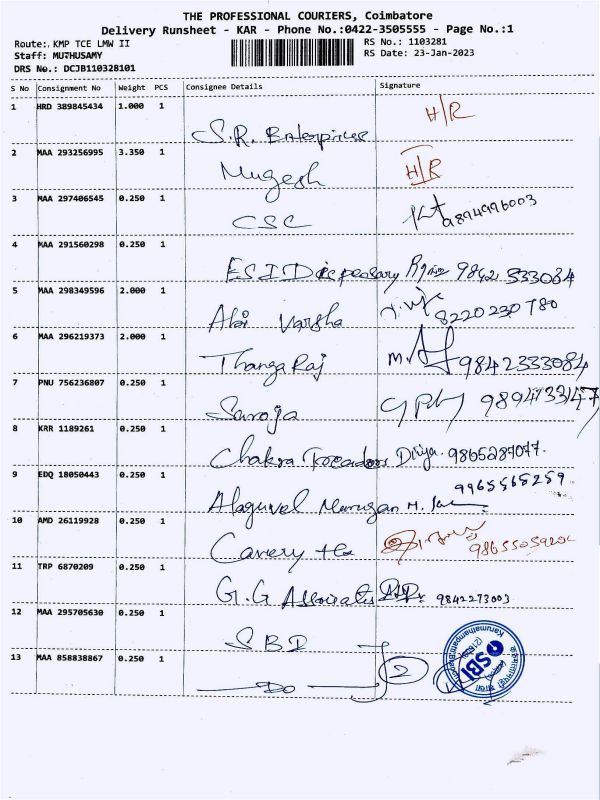 THE PROFESSIONAL COURIERS, Coimbatore
Delivery Runsheet - KAR - Phone No.:0422-3505555 - Page No.:1
Route:. KMP TCE LMW II RS No.: 1103281
Staff: MUTHUSAMY RS Date: 23-Jan-2023
DRS No.: DCJB110328101
S No Consignment No Weight PCS Consignee Details Signature
1 HRD 389845434 1.000 1
S.R. Enterprises H/R
2 MAA 293256995 3.350 1
Mugesh H/R
3 MAA 297406545 0.250 1
CSC 9894996003
4 MAA 291560298 0.250 1
ESI Dispensary 98421 333084
5 MAA 298349596 2.000 1
Abi Varsha 8220230780
6 MAA 296219373 2.000 1
Thanga Raj 9842333084
7 PNU 756236807 0.250 1
Saroja
8 KRR 1189261 0.250 1
Chakra Treaders Divya. 9865287077.
9 EDQ 18050443 0.250 1
Alaguvel Murugan 9965565259
10 AMD 26119928 0.250 1
Cavery
11 TRP 6870209 0.250 1
G.G Associates 9842273003
12 MAA 295705630 0.250 1
SBI
13 MAA 858838867 0.250 1
Do 2
SBI